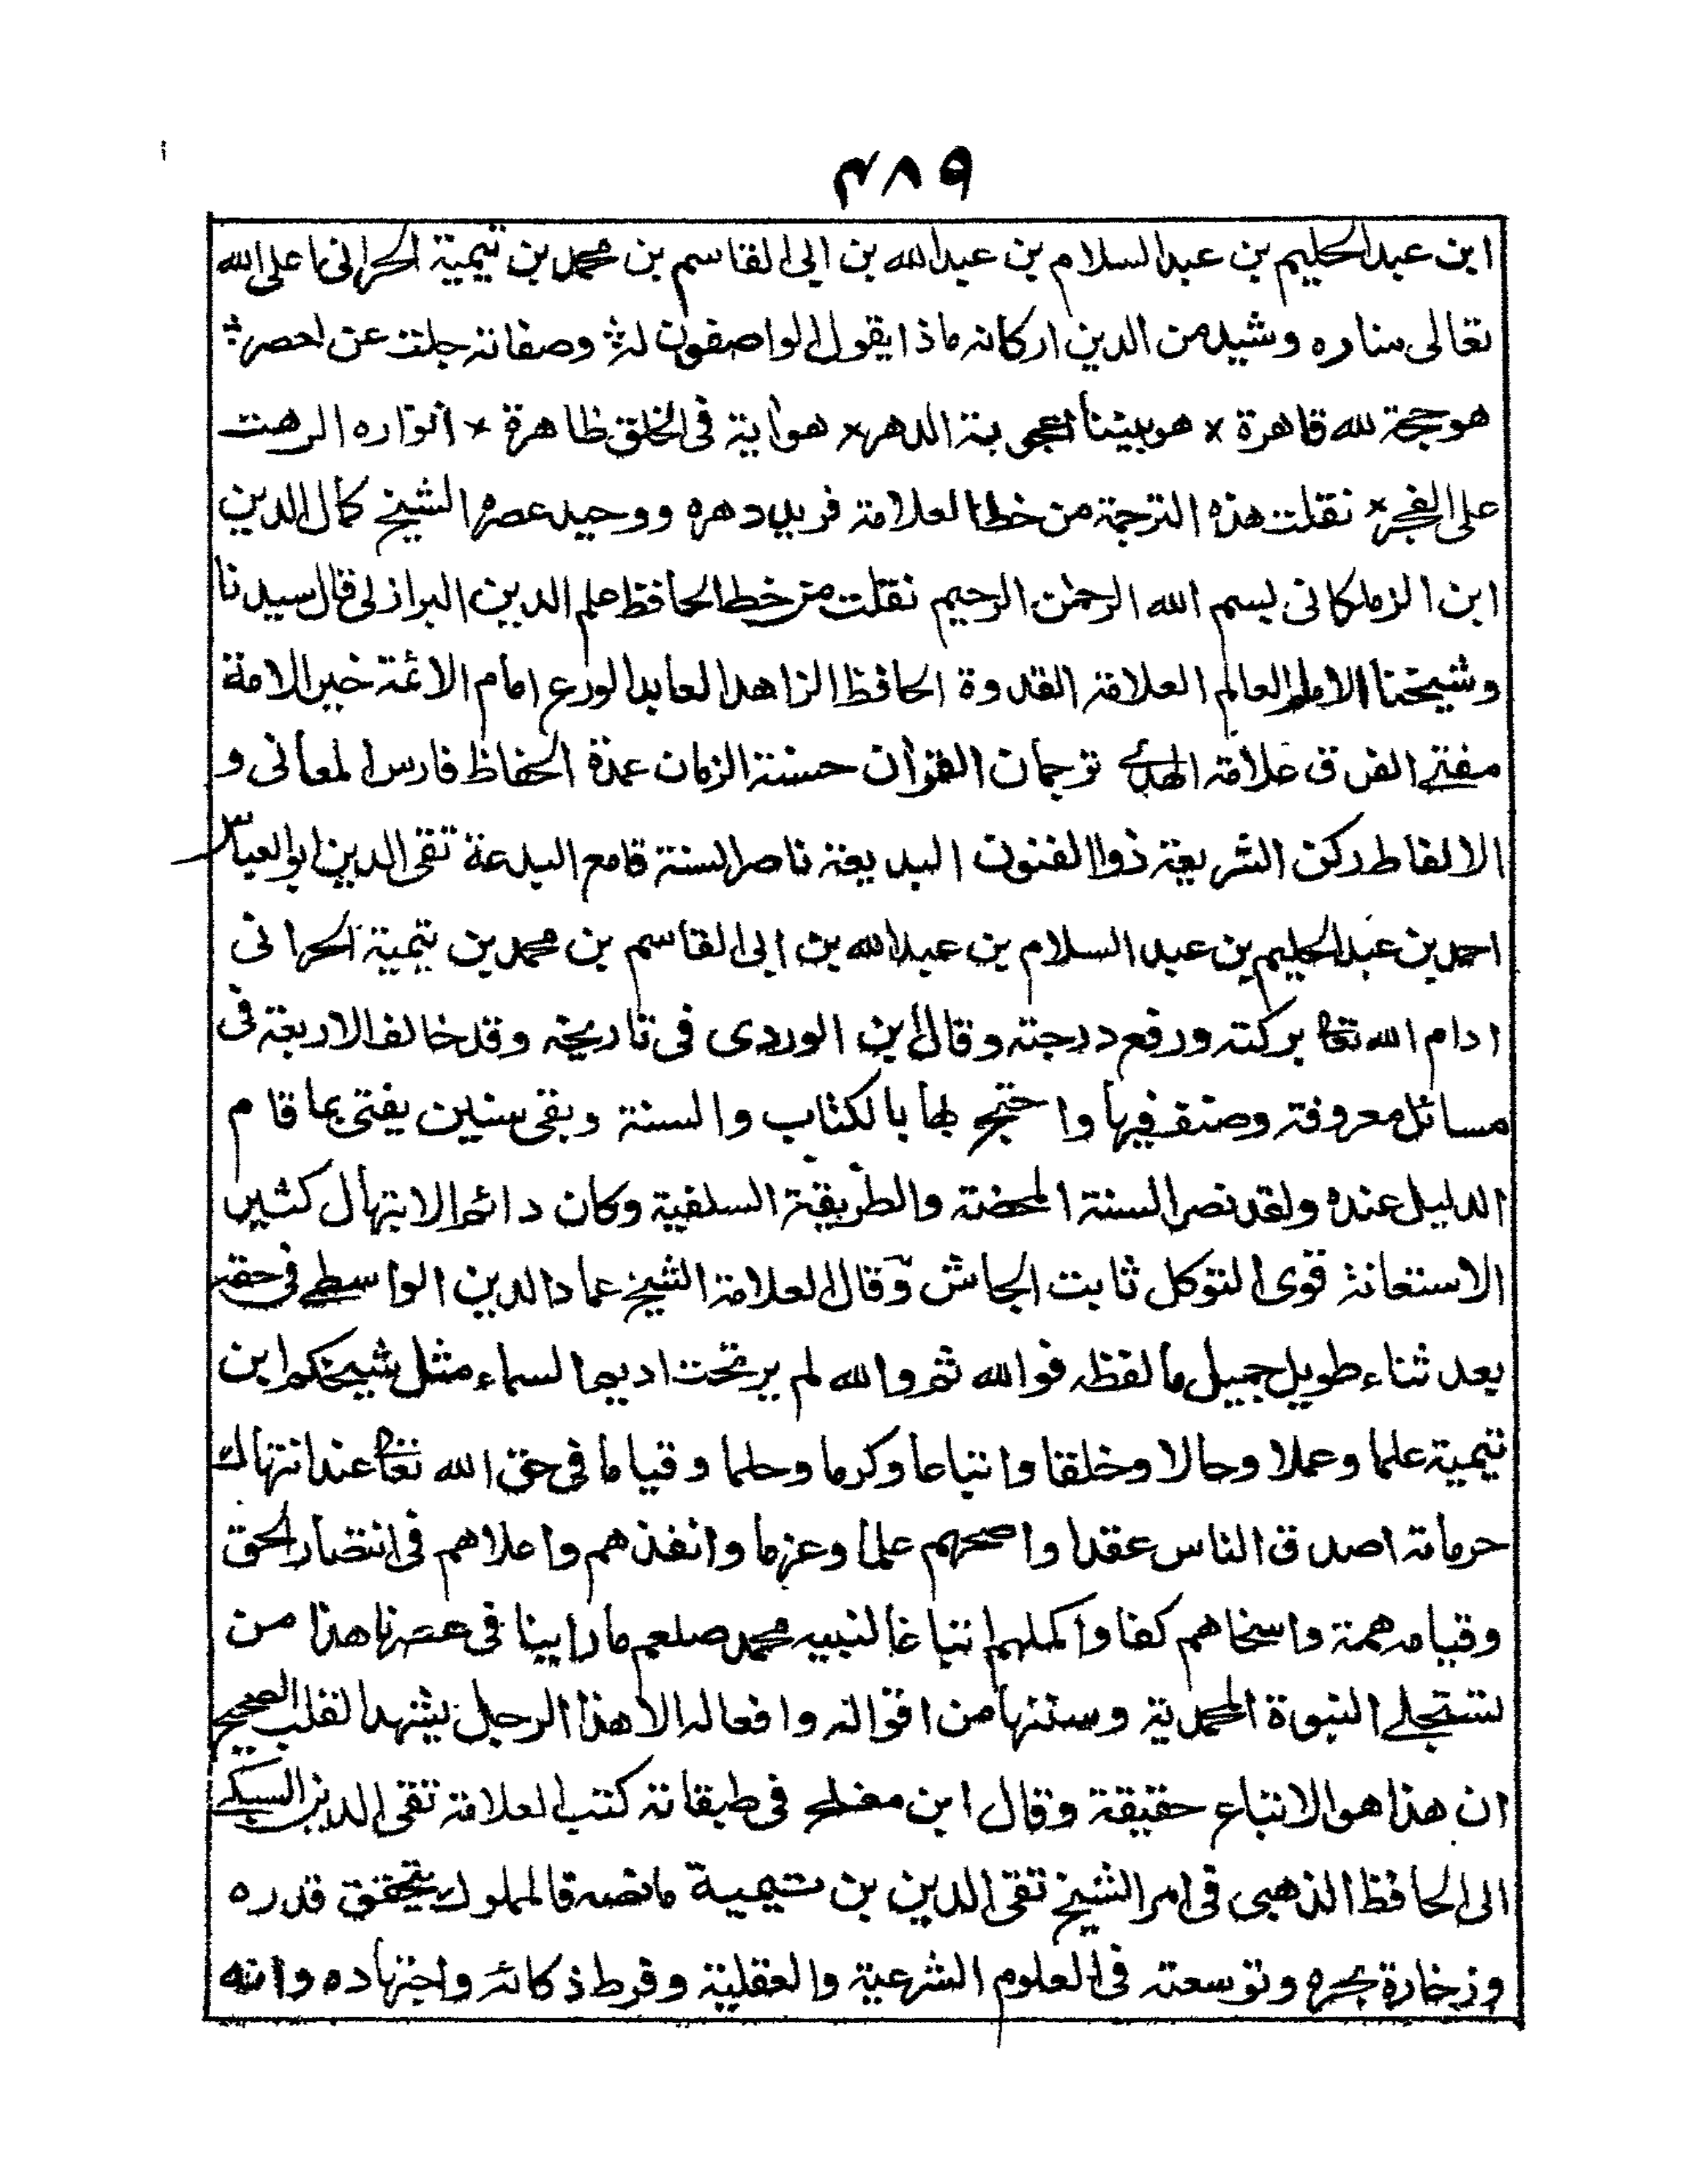 ٤٨٩
ابن عبد الحليم بن عبد السلام بن عبد الله بن ابي القاسم بن محمد بن تيمية الحراني اعلى الله
تعالى مناره وشيد من الدين اركانه ماذا يقول الواصفون له ؞ وصفاته جلت عن احصر ؞
هو حجة لله قاهرة × هو بيننا اعجوبة الدهر × هو اية في الخلق ظاهرة × انواره اربت
على الفجر × نقلت هذه الترجمة من خط العلامة فريد دهره ووحيد عصره الشيخ كمال الدين
ابن الزملكانى بسم الله الرحمن الرحيم نقلت من خط الحافظ علم الدين البرازلى قال سيدنا
وشيخنا الامام العالم العلامة القدوة الحافظ الزاهد العابد الورع امام الائمة خير الامة
مفتے الفرق علامة الهدى ترجمان القرأن حسنة الزمان عمدة الحفاظ فارس المعانى و
الالفاظ ركن الشريعة ذوا الفنون البديعة ناصر السنة قامع البدعة تقى الدين ابو العباس
احمد بن عبد الحليم بن عبد السلام بن عبد الله بن ابى القاسم بن محمد بن تيمية الحرانى
ادام الله تعا بركته ورفع درجته وقال ابن الوردى فى تاريخه وقد خالف الاربعة فى
مسائل معروفة وصنف فيها واحتج لها بالكتاب والسنة وبقى سنين يفتى بما قام
الدليل عنده ولقد نصر السنة المحضة والطريقة السلفية وكان دائم الابتهال كثير
الاستغانة قوى التوكل ثابت الجاش وقال العلامة الشيخ عماد الدين الواسطے فى حقه
بعد ثناء طويل جميل ما لفظه فوالله ثم والله لم ير تحت اديم السماء مثل شيخكم ابن
تيمية علما وعملا وحالا وخلقا واتباعا وكرما وحلما وقياما فى حق الله تعا عند انتهاك
حرماته اصدق الناس عقدا واصحهم علما وعزما وانفذهم واعلاهم فى انتصار الحق
وقيامه همة واسخاهم كفا واكملهم اتباعا لنبيه محمد صلعم ما راينا فى عصرنا هذا من
تستجلے النبوة المحمدية وسننها من اقواله وافعاله الا هذا الرجل يشهد القلب الصحيح
ان هذا هو الاتباع حقيقة وقال ابن مفلح فى طبقاته كتب العلامة تقى الدين السبكے
الى الحافظ الذهبى فى امر الشيخ تقى الدين بن تيمية ما نصه فالمملوك يتحقق قدره
وزخارة بحره وتوسعته فى العلوم الشرعية والعقلية وفرط ذكائه واجتهاده وانه